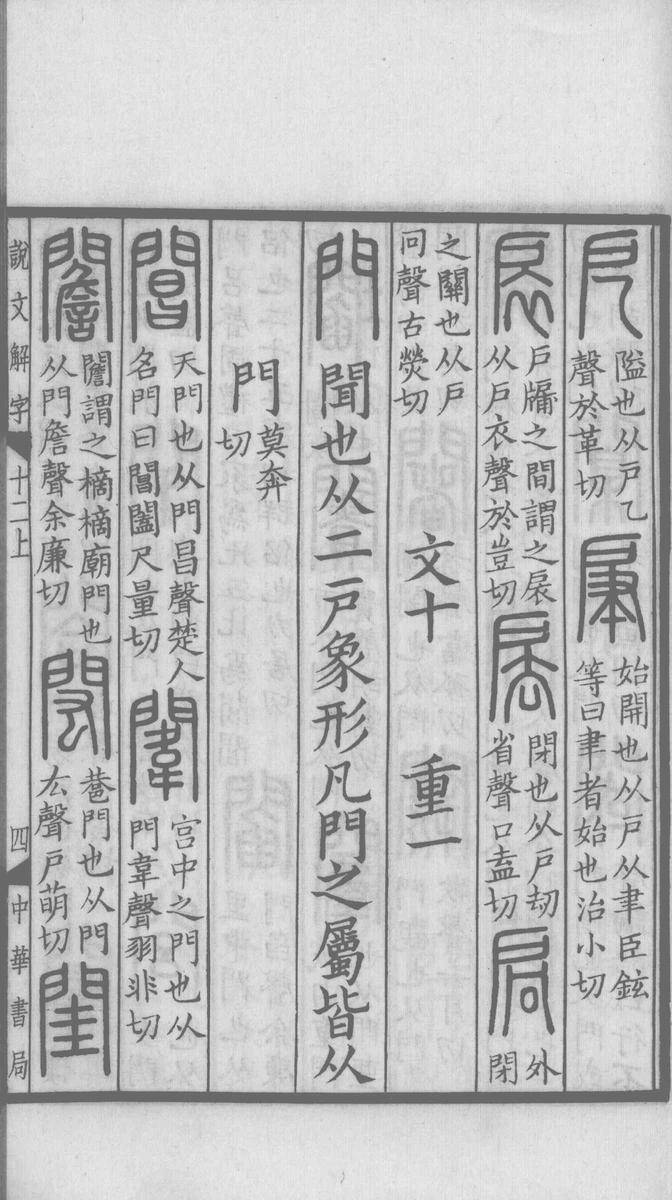 戹 隘也从戶乙
聲於革切
肁 始開也从戶从聿臣鉉
等曰聿者始也治小切
扆 戶牖之間謂之扆
从戶衣聲於豈切
㧁 閉也从戶劫
省聲口盍切
扃 外閉
之關也从戶
冋聲古熒切
文十 重一
門 聞也从二戶象形凡門之屬皆从
門 莫奔
切
閶 天門也从門昌聲楚人
名門曰閶闔尺量切
闈 宮中之門也从
門韋聲羽非切
䦲 䦲謂之樀樀廟門也
从門詹聲余廉切
閎 巷門也从門
厷聲戶萌切
閨
說文解字 十二上
四
中華書局